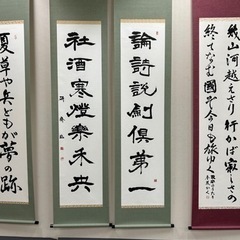 幾山河越えさり行かば寂しさの
終てなむ国ぞ今日も旅ゆく
論詩説劍俱第一
社酒寒燈樂未央
夏草や兵どもが夢の跡